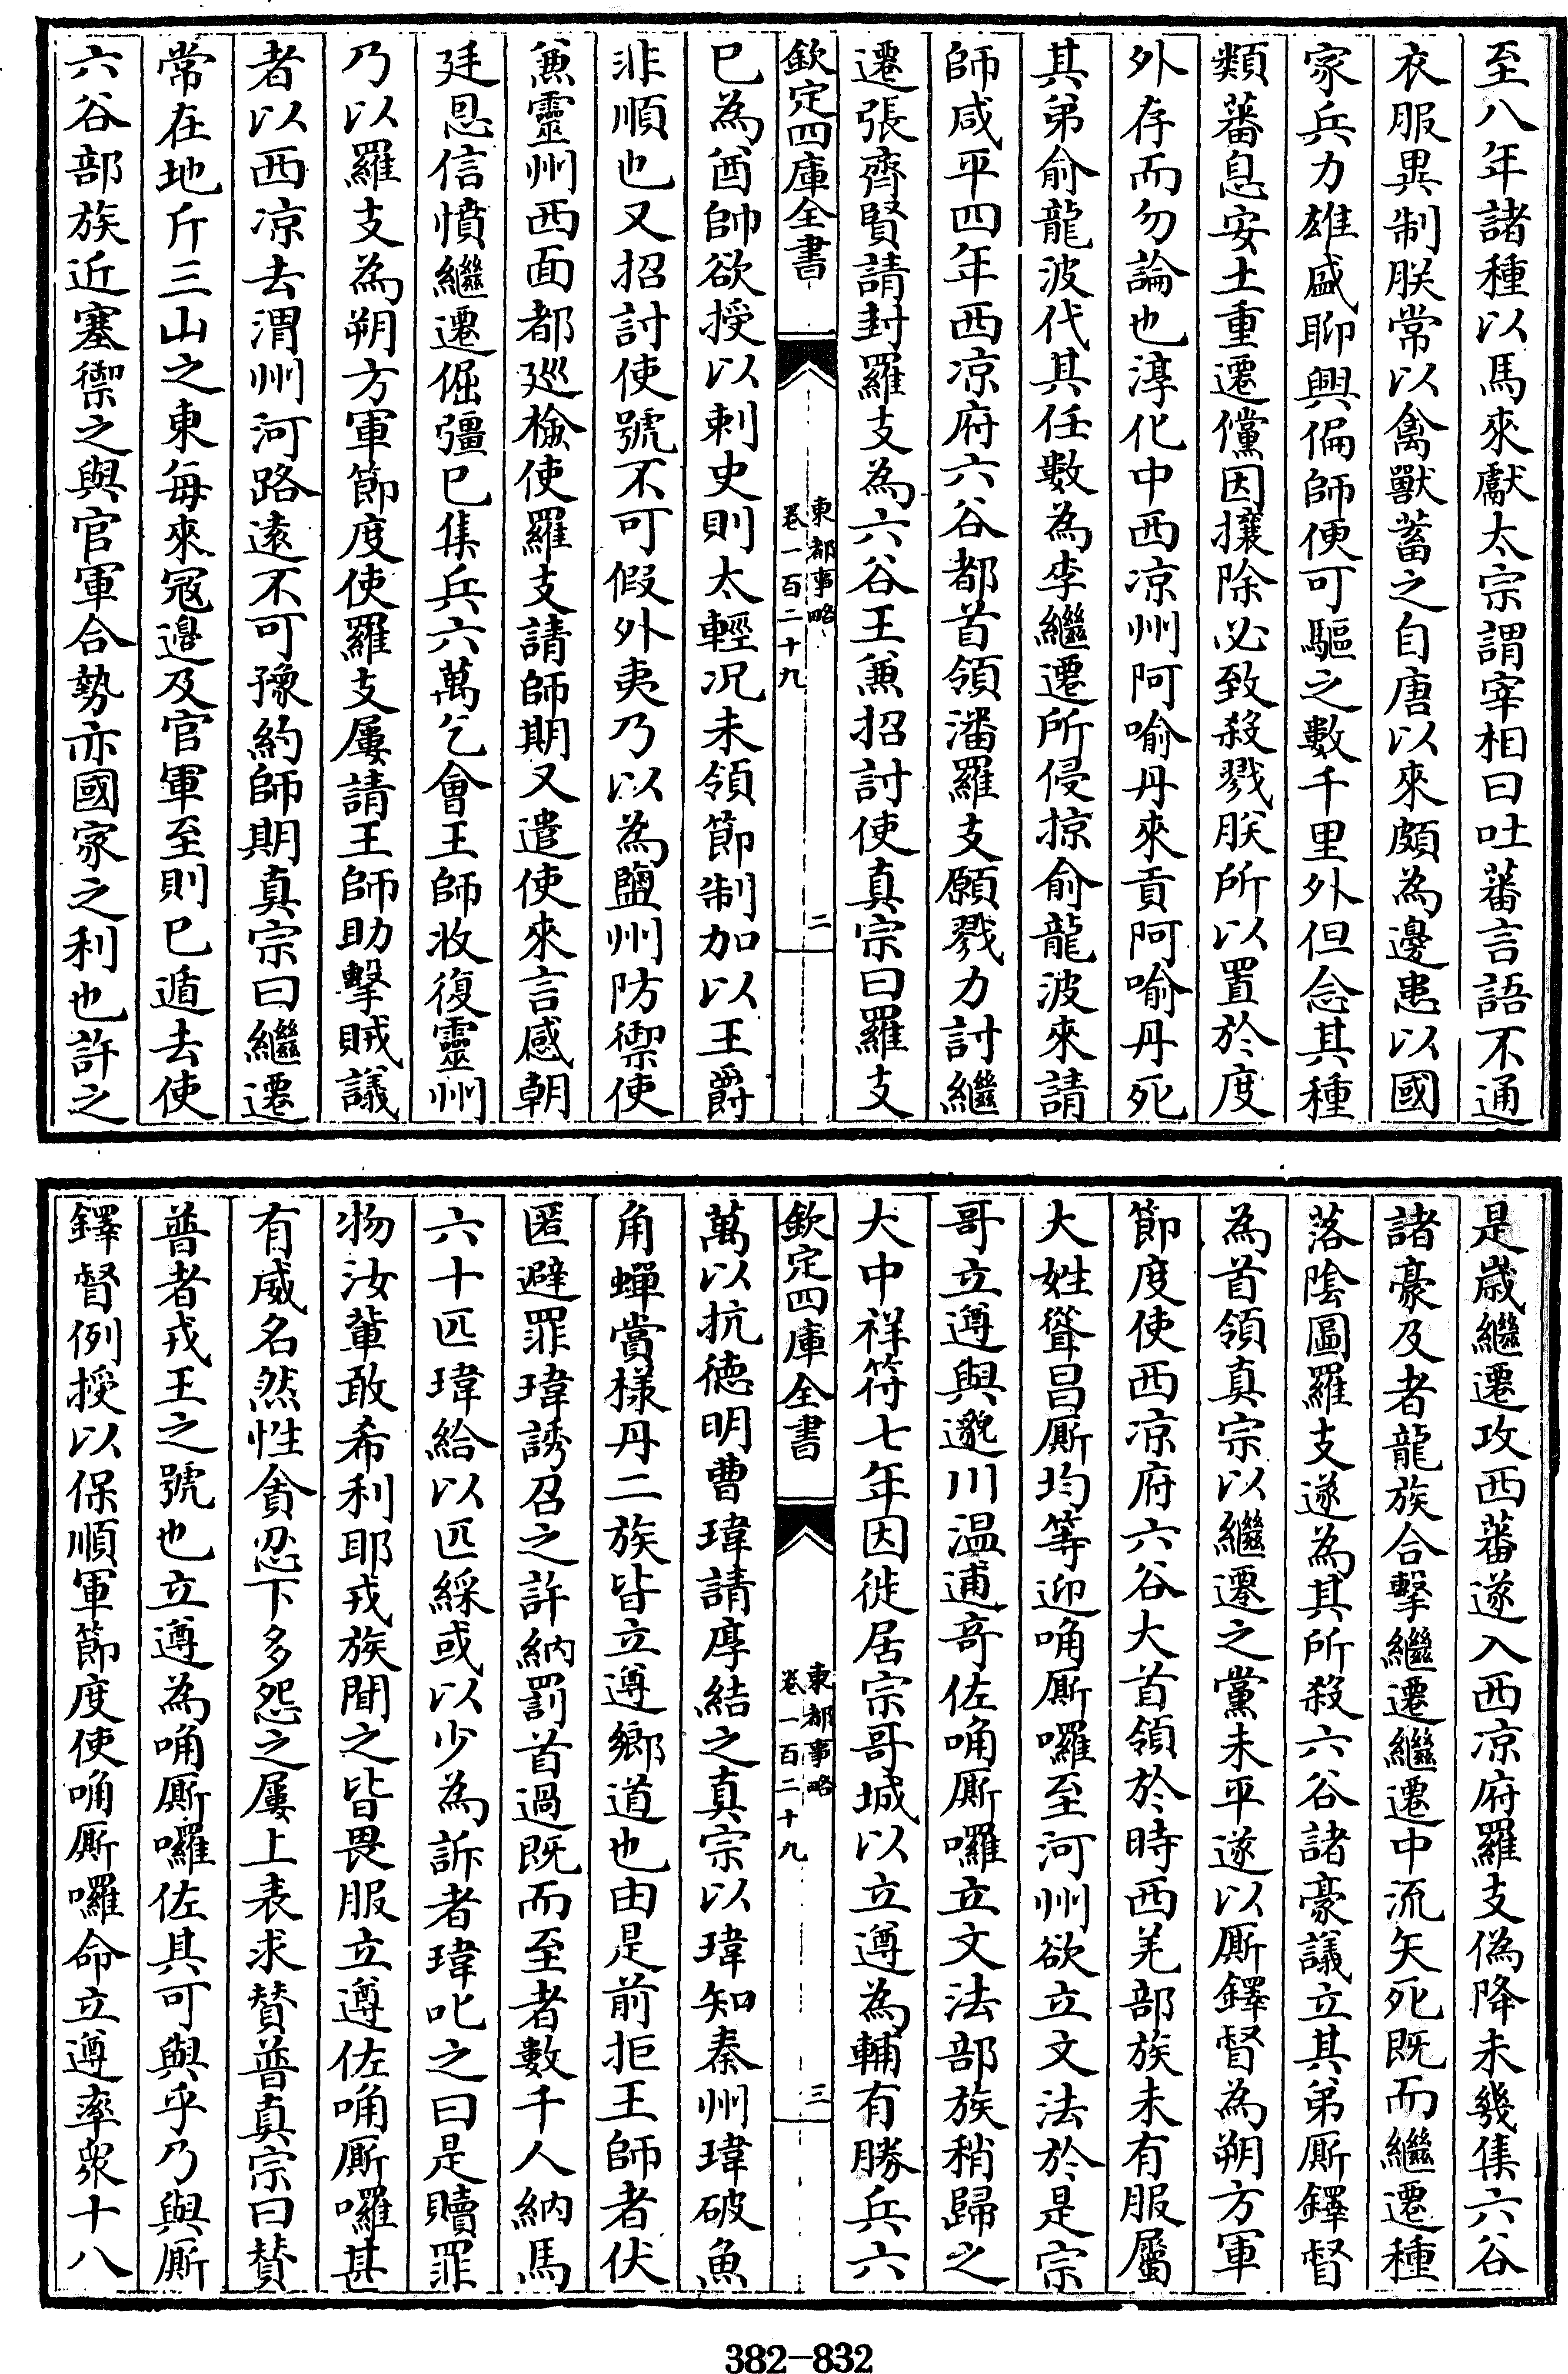 至八年諸種以馬來獻太宗謂宰相曰吐蕃言語不通
衣服異制朕常以禽獸蓄之自唐以來頗為邊患以國
家兵力雄盛聊興偏師便可驅之數千里外但念其種
類蕃息安土重遷儻因攘除必致殺戮朕所以置於度
外存而勿論也淳化中西凉州阿喻丹來貢阿喻丹死
其弟俞龍波代其任數為李繼遷所侵掠俞龍波來請
師咸平四年西凉府六谷都首領潘羅支願戮力討繼
遷張齊賢請封羅支為六谷王兼招討使真宗曰羅支
欽定四庫全書
東都事略
卷一百二十九
二
已為酋帥欲授以刺史則太輕况未領節制加以王爵
非順也又招討使號不可假外夷乃以為鹽州防禦使
兼靈州西面都廵檢使羅支請師期又遣使來言感朝
廷恩信憤繼遷倔彊已集兵六萬乞會王師收復靈州
乃以羅支為朔方軍節度使羅支屢請王師助擊賊議
者以西凉去渭州河路遠不可豫約師期真宗曰繼遷
常在地斤三山之東每來冦邊及官軍至則已遁去使
六谷部族近塞禦之與官軍合勢亦國家之利也許之
是歲繼遷攻西蕃遂入西凉府羅支偽降未幾集六谷
諸豪及者龍族合擊繼遷繼遷中流矢死既而繼遷種
落陰圖羅支遂為其所殺六谷諸豪議立其弟厮鐸督
為首領真宗以繼遷之黨未平遂以厮鐸督為朔方軍
節度使西凉府六谷大首領於時西羌部族未有服屬
大姓聳昌厮均等迎唃厮囉至河州欲立文法於是宗
哥立遵與邈川温逋竒佐唃厮囉立文法部族稍歸之
大中祥符七年因徙居宗哥城以立遵為輔有勝兵六
欽定四庫全書
東都事略
卷一百二十九
三
萬以抗德明曹瑋請厚結之真宗以瑋知秦州瑋破魚
角蟬賞様丹二族皆立遵鄉道也由是前拒王師者伏
匿避罪瑋誘召之許納罰首過既而至者數千人納馬
六十匹瑋給以匹綵或以少為訴者瑋叱之曰是贖罪
物汝輩敢希利耶戎族聞之皆畏服立遵佐唃厮囉甚
有威名然性貪忍下多怨之屢上表求賛普真宗曰賛
普者戎王之號也立遵為唃厮囉佐其可與乎乃與厮
鐸督例授以保順軍節度使唃厮囉命立遵率衆十八
382-832